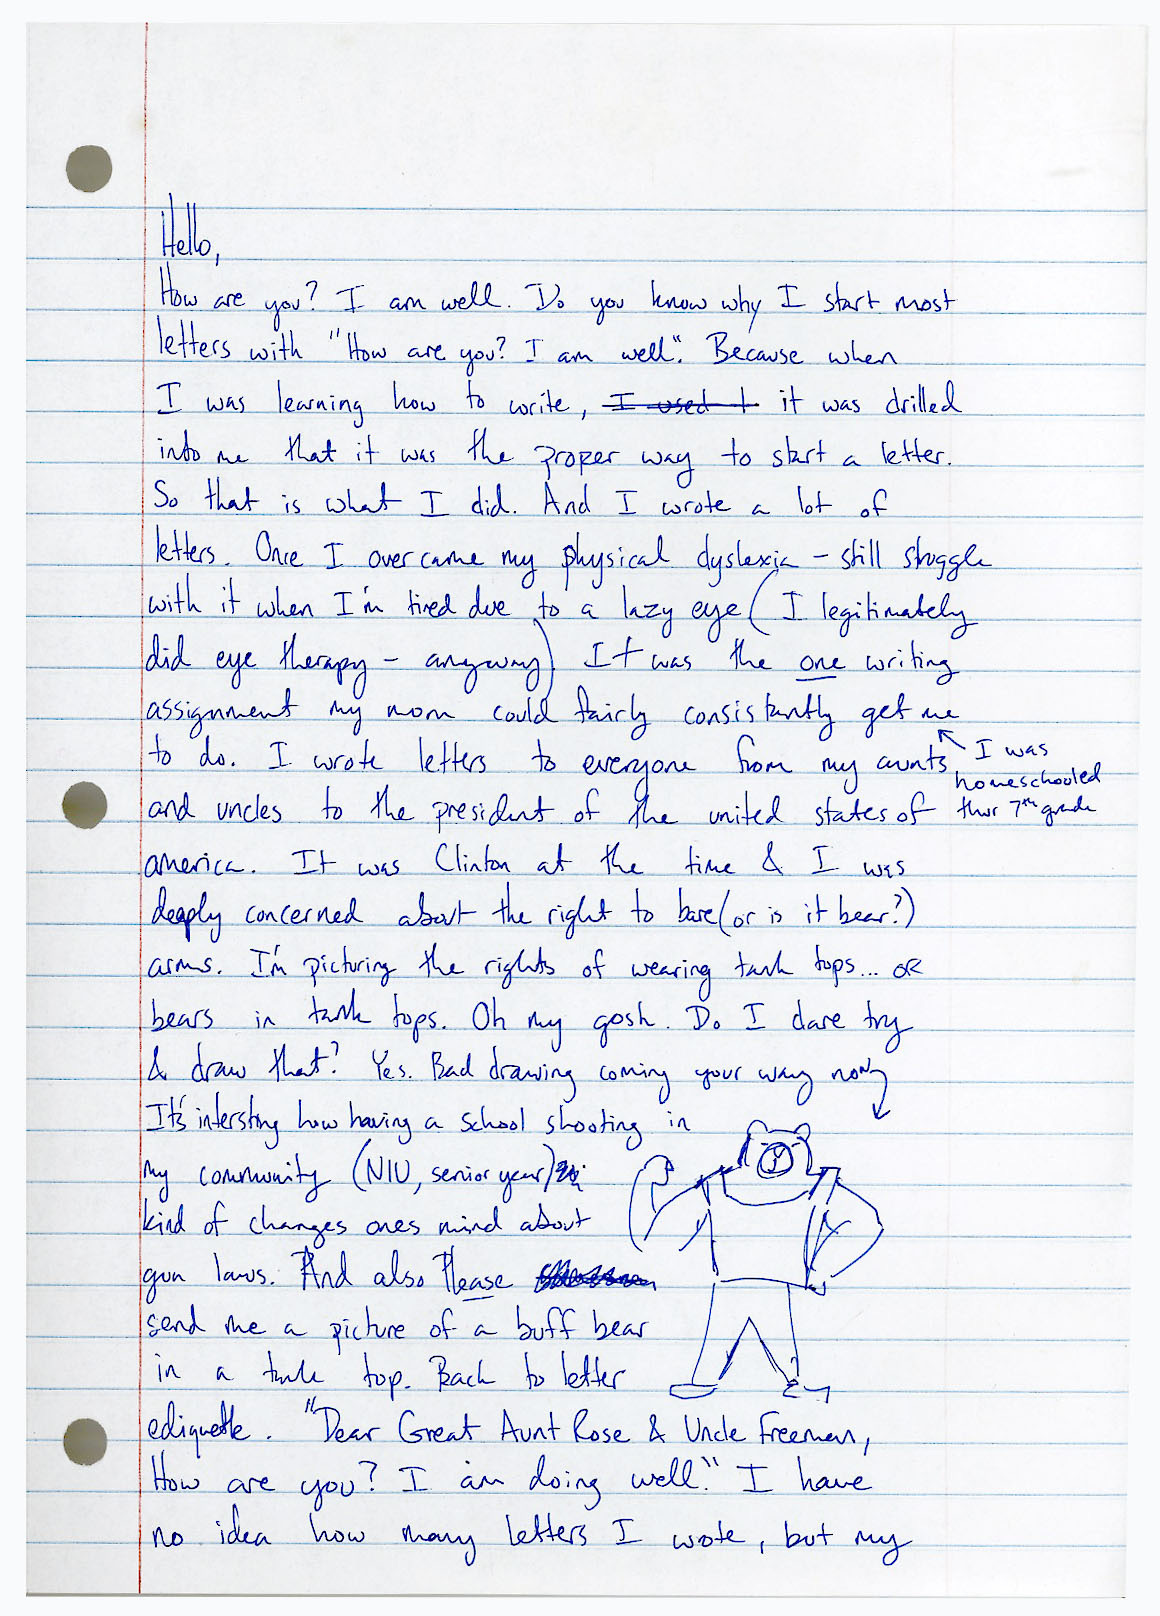 Hello,
How are you? I am well. Do you know why I start most
letters with "How are you? I am well". Because when
I was learning how to write, I used t it was drilled
into me that it was the proper way to start a letter.
So that is what I did. And I wrote a lot of
letters. Once I overcame my physical dyslexia - still stuggle
with it when I'm tired due to a lazy eye (I legitimately
did eye therapy - anyway) It was the one writing
assignment my mom could fairly consistantly get me
to do. I wrote letters to everyone from my aunts
I was
homeschooled
thur 7th grade
and uncles to the president of the united states of
america. It was Clinton at the time & I was
deeply concerned about the right to bare (or is it bear?)
arms. I'm picturing the rights of wearing tank tops... OR
bears in tank tops. Oh my gosh. Do I dare try
& draw that? Yes. Bad drawing coming your way now
It's intersting how having a school shooting in
my community (NIU, senior year)
kind of changes ones mind about
gun laws. And also Please
send me a picture of a buff bear
in a tank top. Back to letter
ediquette. "Dear Great Aunt Rose & Uncle Freeman,
How are you? I am doing well." I have
no idea how many letters I wote, but my